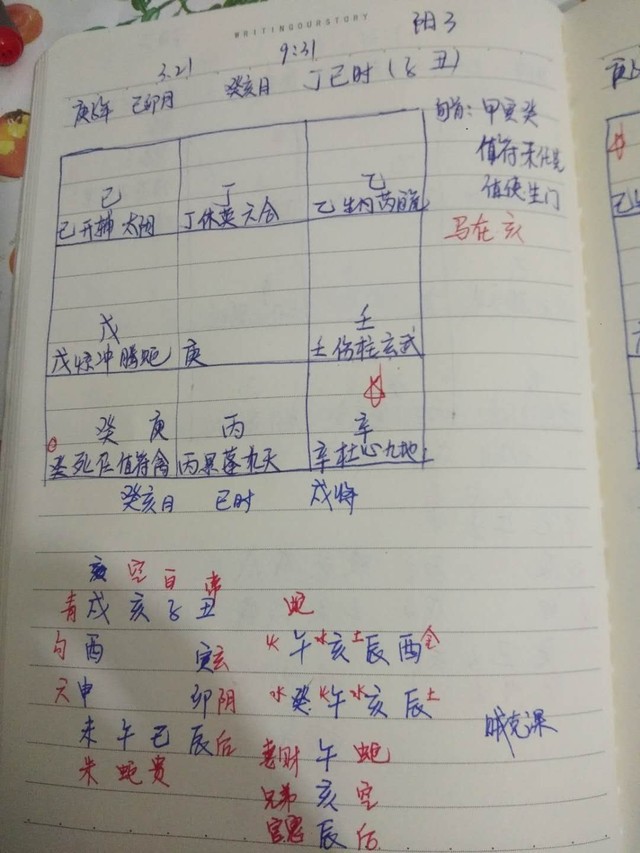 WRITINGOURSTORY
阳3
3.21 9:31
庚子年 己卯月 癸亥日 丁巳时（子丑）
旬首：甲寅癸
值符天任星
值使生门
马在亥
己 丁 乙
己开辅太阴 丁休英六合 乙生
戊 壬
戊惊冲腾蛇 庚 壬伤柱玄武
癸 庚 丙 辛
癸死任值符禽 丙景蓬九天 辛杜心九地
癸亥日 巳时 戌将
空 白 常
青 戌 亥 子 丑 蛇
勾 酉 寅 玄 火 午 水 亥 土 辰 酉 金
六 申 卯 阴 水 癸 火 午 水 亥 辰 土
未 午 巳 辰 后
朱 蛇 贵
妻财 午 蛇
兄弟 亥 空
官鬼 辰 后
克课